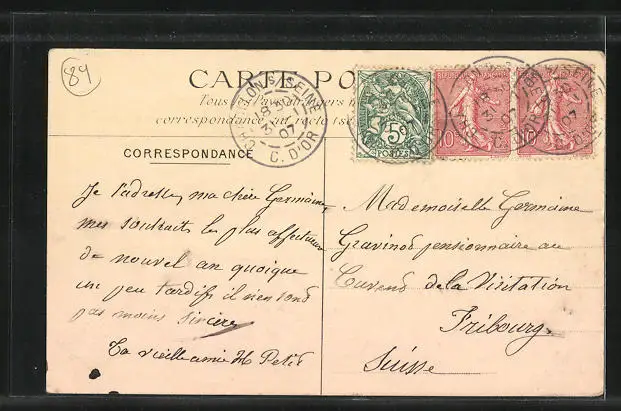 89
CARTE PO
Tous
correspondance au recto
CHATILLON S SEINE
8 30
3 1
07
C. D'OR
5c
POSTES
REPUBLIQUE FRANÇAISE
10c
10c
CORRESPONDANCE
Je t'adresse, ma chère Germaine,
mes souhaits les plus affectueux
de nouvel an quoique
un peu tardifs il n'en sont
pas moins sincère
Ta vieille amie M Petit
Mademoiselle Germaine
Gravinod pensionnaire au
Couvend de la Visitation
Fribourg.
Suisse